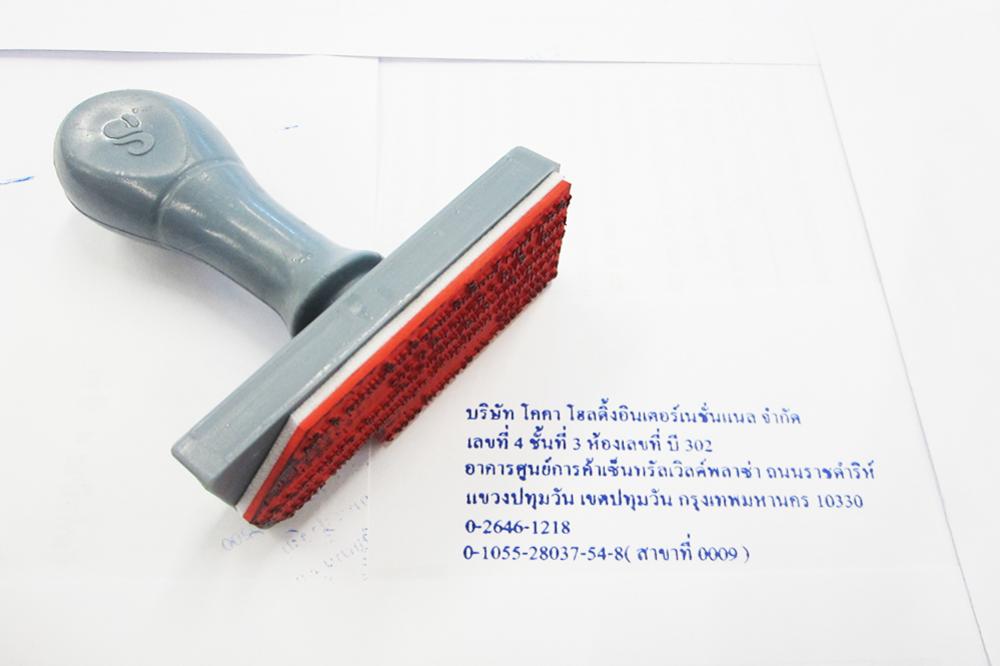 บริษัท โคคา โฮลดิ้งอินเตอร์เนชั่นแนล จำกัด
เลขที่ 4 ชั้นที่ 3 ห้องเลขที่ บี 302
อาคารศูนย์การค้าเซ็นทรัลเวิลด์พลาซ่า ถนนราชดำริห์
แขวงปทุมวัน เขตปทุมวัน กรุงเทพมหานคร 10330
0-2646-1218
0-1055-28037-54-8( สาขาที่ 0009 )